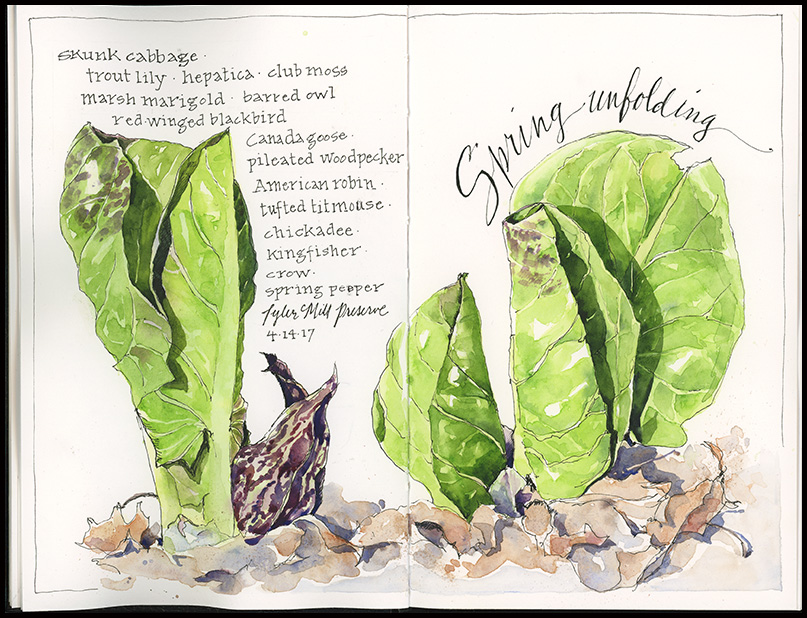 skunk cabbage ·
trout lily · hepatica · club moss
marsh marigold · barred owl
red-winged blackbird
Canada goose ·
pileated woodpecker
American robin ·
tufted titmouse ·
chickadee ·
kingfisher ·
crow ·
spring peeper
Tyler Mill Preserve
4·14·17
Spring unfolding